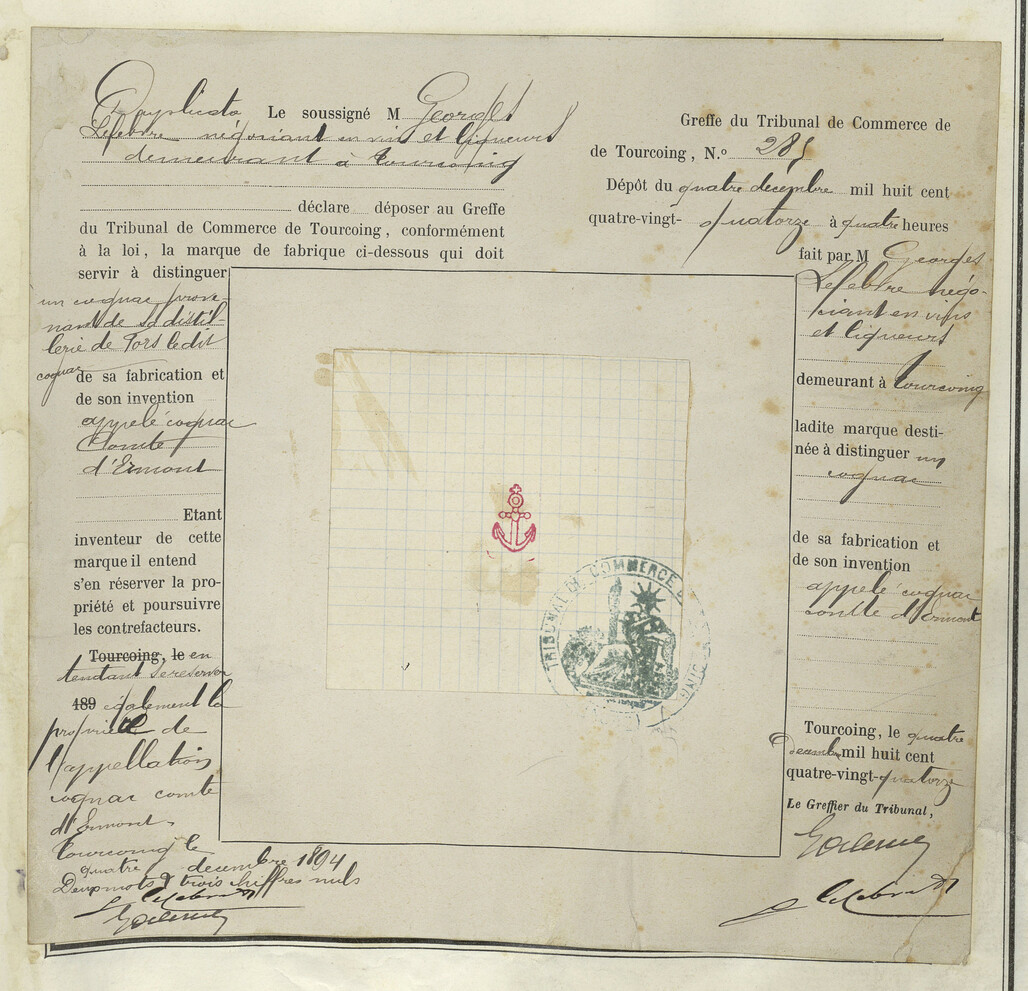 Duplicata Le soussigné M Georges
Lefebvre négociant en vins et liqueurs
demeurant à Tourcoing
déclare déposer au Greffe
du Tribunal de Commerce de Tourcoing, conformément
à la loi, la marque de fabrique ci-dessous qui doit
servir à distinguer
un cognac prove-
nant de sa distil-
lerie de Tors ledit
cognac de sa fabrication et
de son invention
appelé cognac
Comte
d'Ermont
Etant
inventeur de cette
marque il entend
s'en réserver la pro-
priété et poursuivre
les contrefacteurs.
Tourcoing, le en
tendant se reserver
189 également la
propriété de
l'appellation
cognac comte
d'Ermont.
Tourcoing le
quatre decembre 1894
Deux mots & trois chiffres nuls
Lefebvre
Greffe du Tribunal de Commerce de
de Tourcoing, N.º 285
Dépôt du quatre décembre mil huit cent
quatre-vingt-quatorze à quatre heures
fait par M Georges
Lefebvre négo-
ciant en vins
et liqueurs
demeurant à Tourcoing
ladite marque desti-
née à distinguer un
cognac
de sa fabrication et
de son invention
appelé cognac
comte d'Ermont
Tourcoing, le quatre
decembre mil huit cent
quatre-vingt-quatorze
Le Greffier du Tribunal,
Lefebvre
TRIBUNAL DE COMMERCE